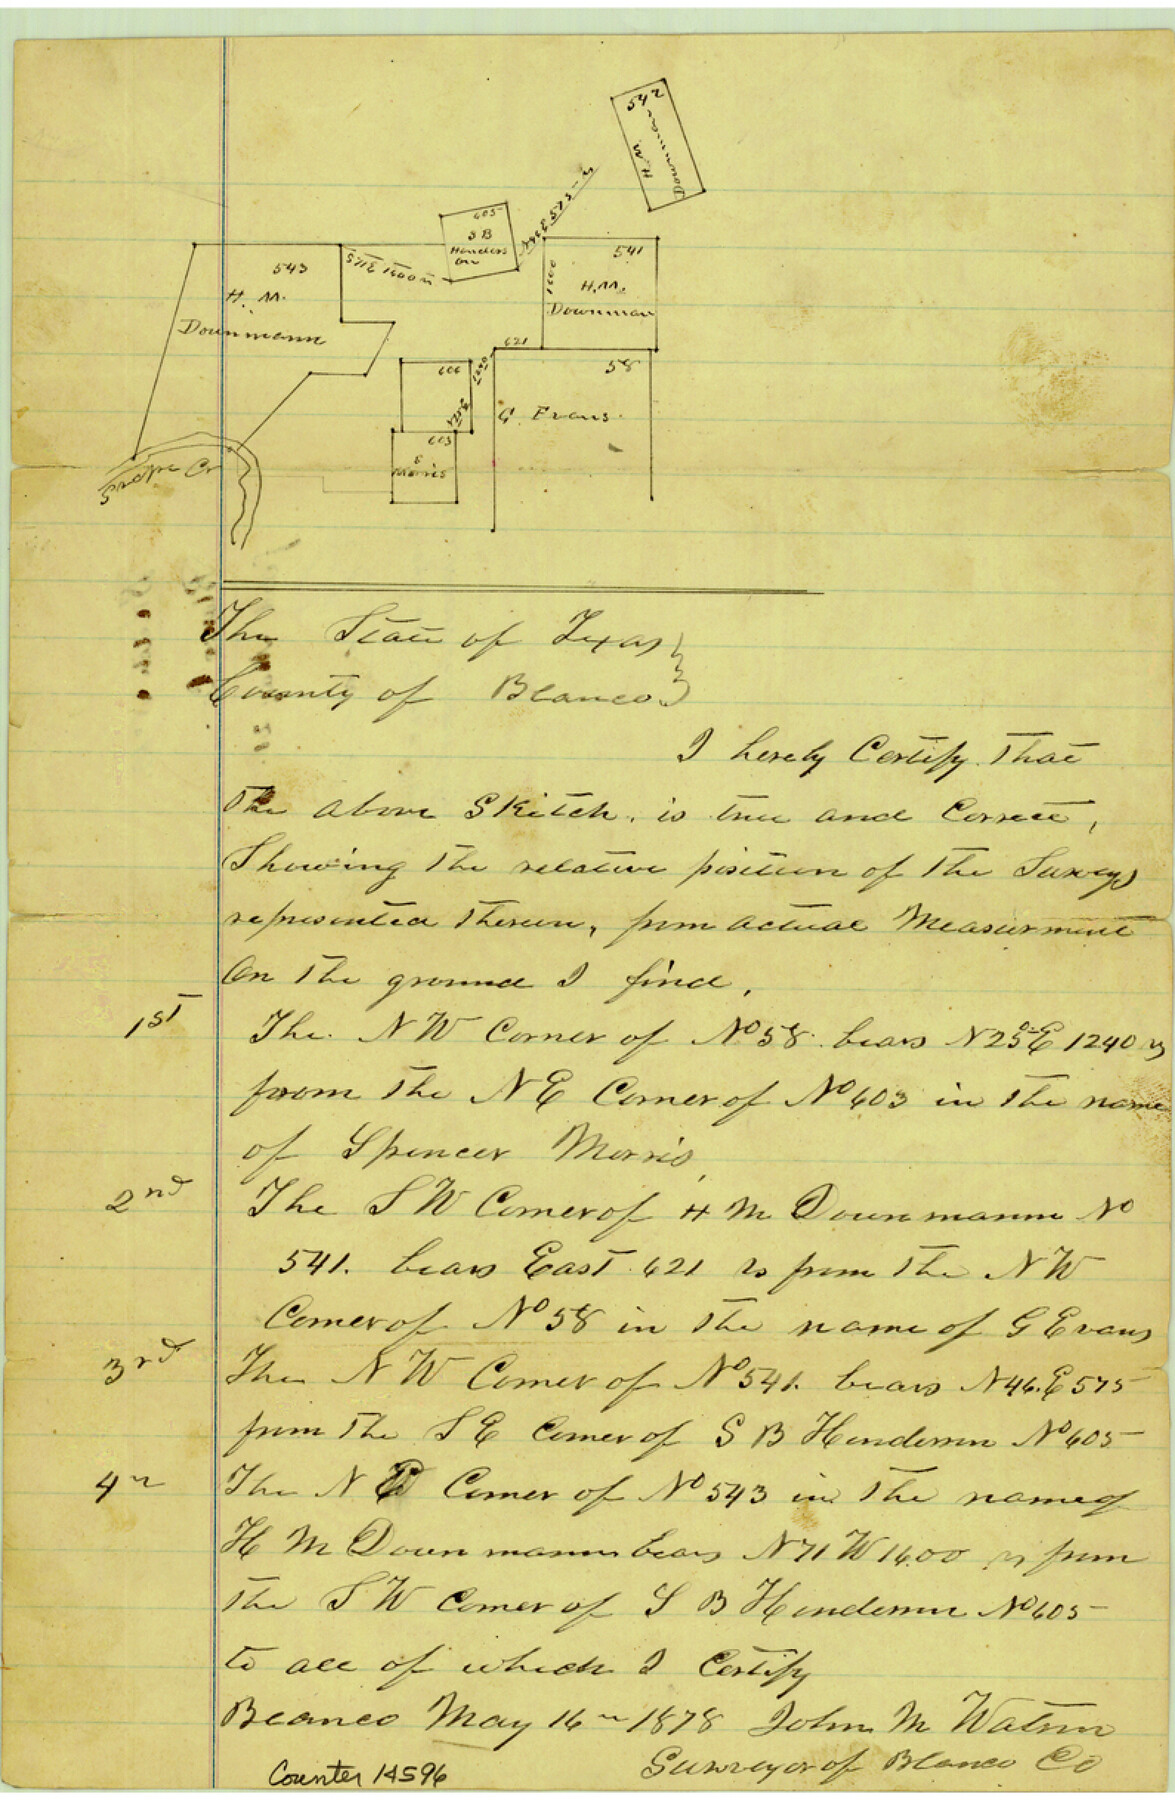 542
H. M.
Downman
605
S B
Henders
on
N46E575 vs
543
H. M.
Downmann
S71E 1600 vs
541
H. M.
Downman
621
58
G. Evans.
606
1240
N25E
603
S
Morris
Grape Cr
The State of Texas
County of Blanco.
I hereby Certify that
the above Sketch, is true and Correct,
Showing the relative position of the Surveys
represented thereon, from actual Measurment
On the ground I find.
1st The N W Corner of No 58. bears N25°E 1240 vs
from the N E Corner of No 603 in the name
of Spencer Morris
2nd The S W Corner of H M Downmann No
541. bears East 621 vs from the N W
Corner of No 58 in the name of G Evans
3rd The N W Corner of No 541. bears N46.E 575
from the S E Corner of S B Henderson No 605
4th The N E Corner of No 543 in the name of
H M Downmann bears N71W1600 vs from
the S W Corner of S B Henderson No 605
to all of which I Certify
Blanco May 16th 1878 John M Watson
Surveyor of Blanco Co
Counter 14596